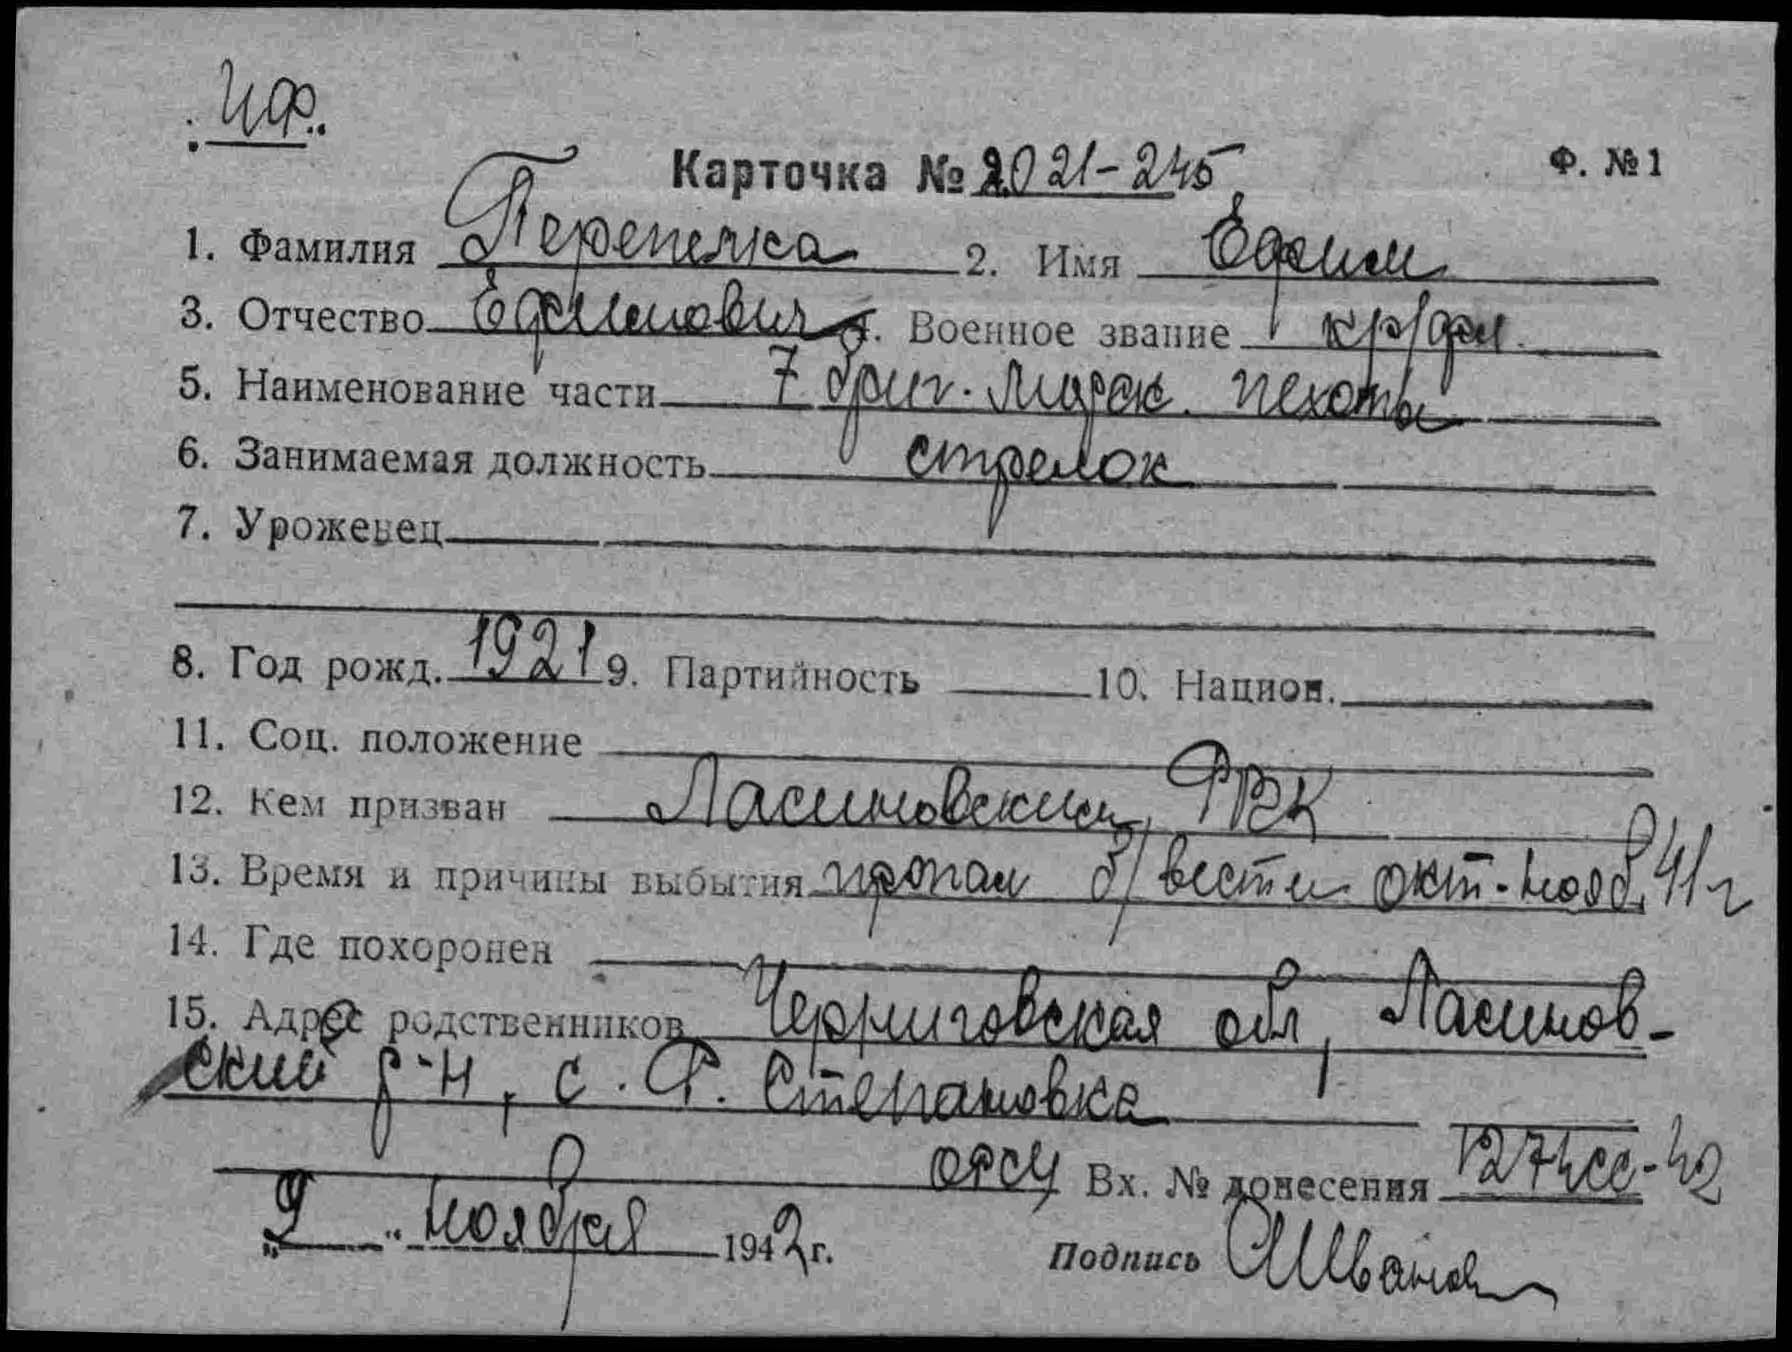 ИФ.
Карточка № 2021-245 Ф. № 1
1. Фамилия Перепечка 2. Имя Ефим
3. Отчество Ефимович 4. Военное звание кр/фл.
5. Наименование части 7 бриг. морск. пехоты
6. Занимаемая должность стрелок
7. Уроженец
8. Год рожд. 1921 9. Партийность 10. Национ.
11. Соц. положение
12. Кем призван Лосиновским РВК
13. Время и причины выбытия пропал б/вести окт-нояб. 41 г
14. Где похоронен
15. Адрес родственников Черниговская обл, Лосинов-
ский р-н, с. Степановка
Вх. № донесения 1274сс-42
„9" ноября 1942 г. Подпись